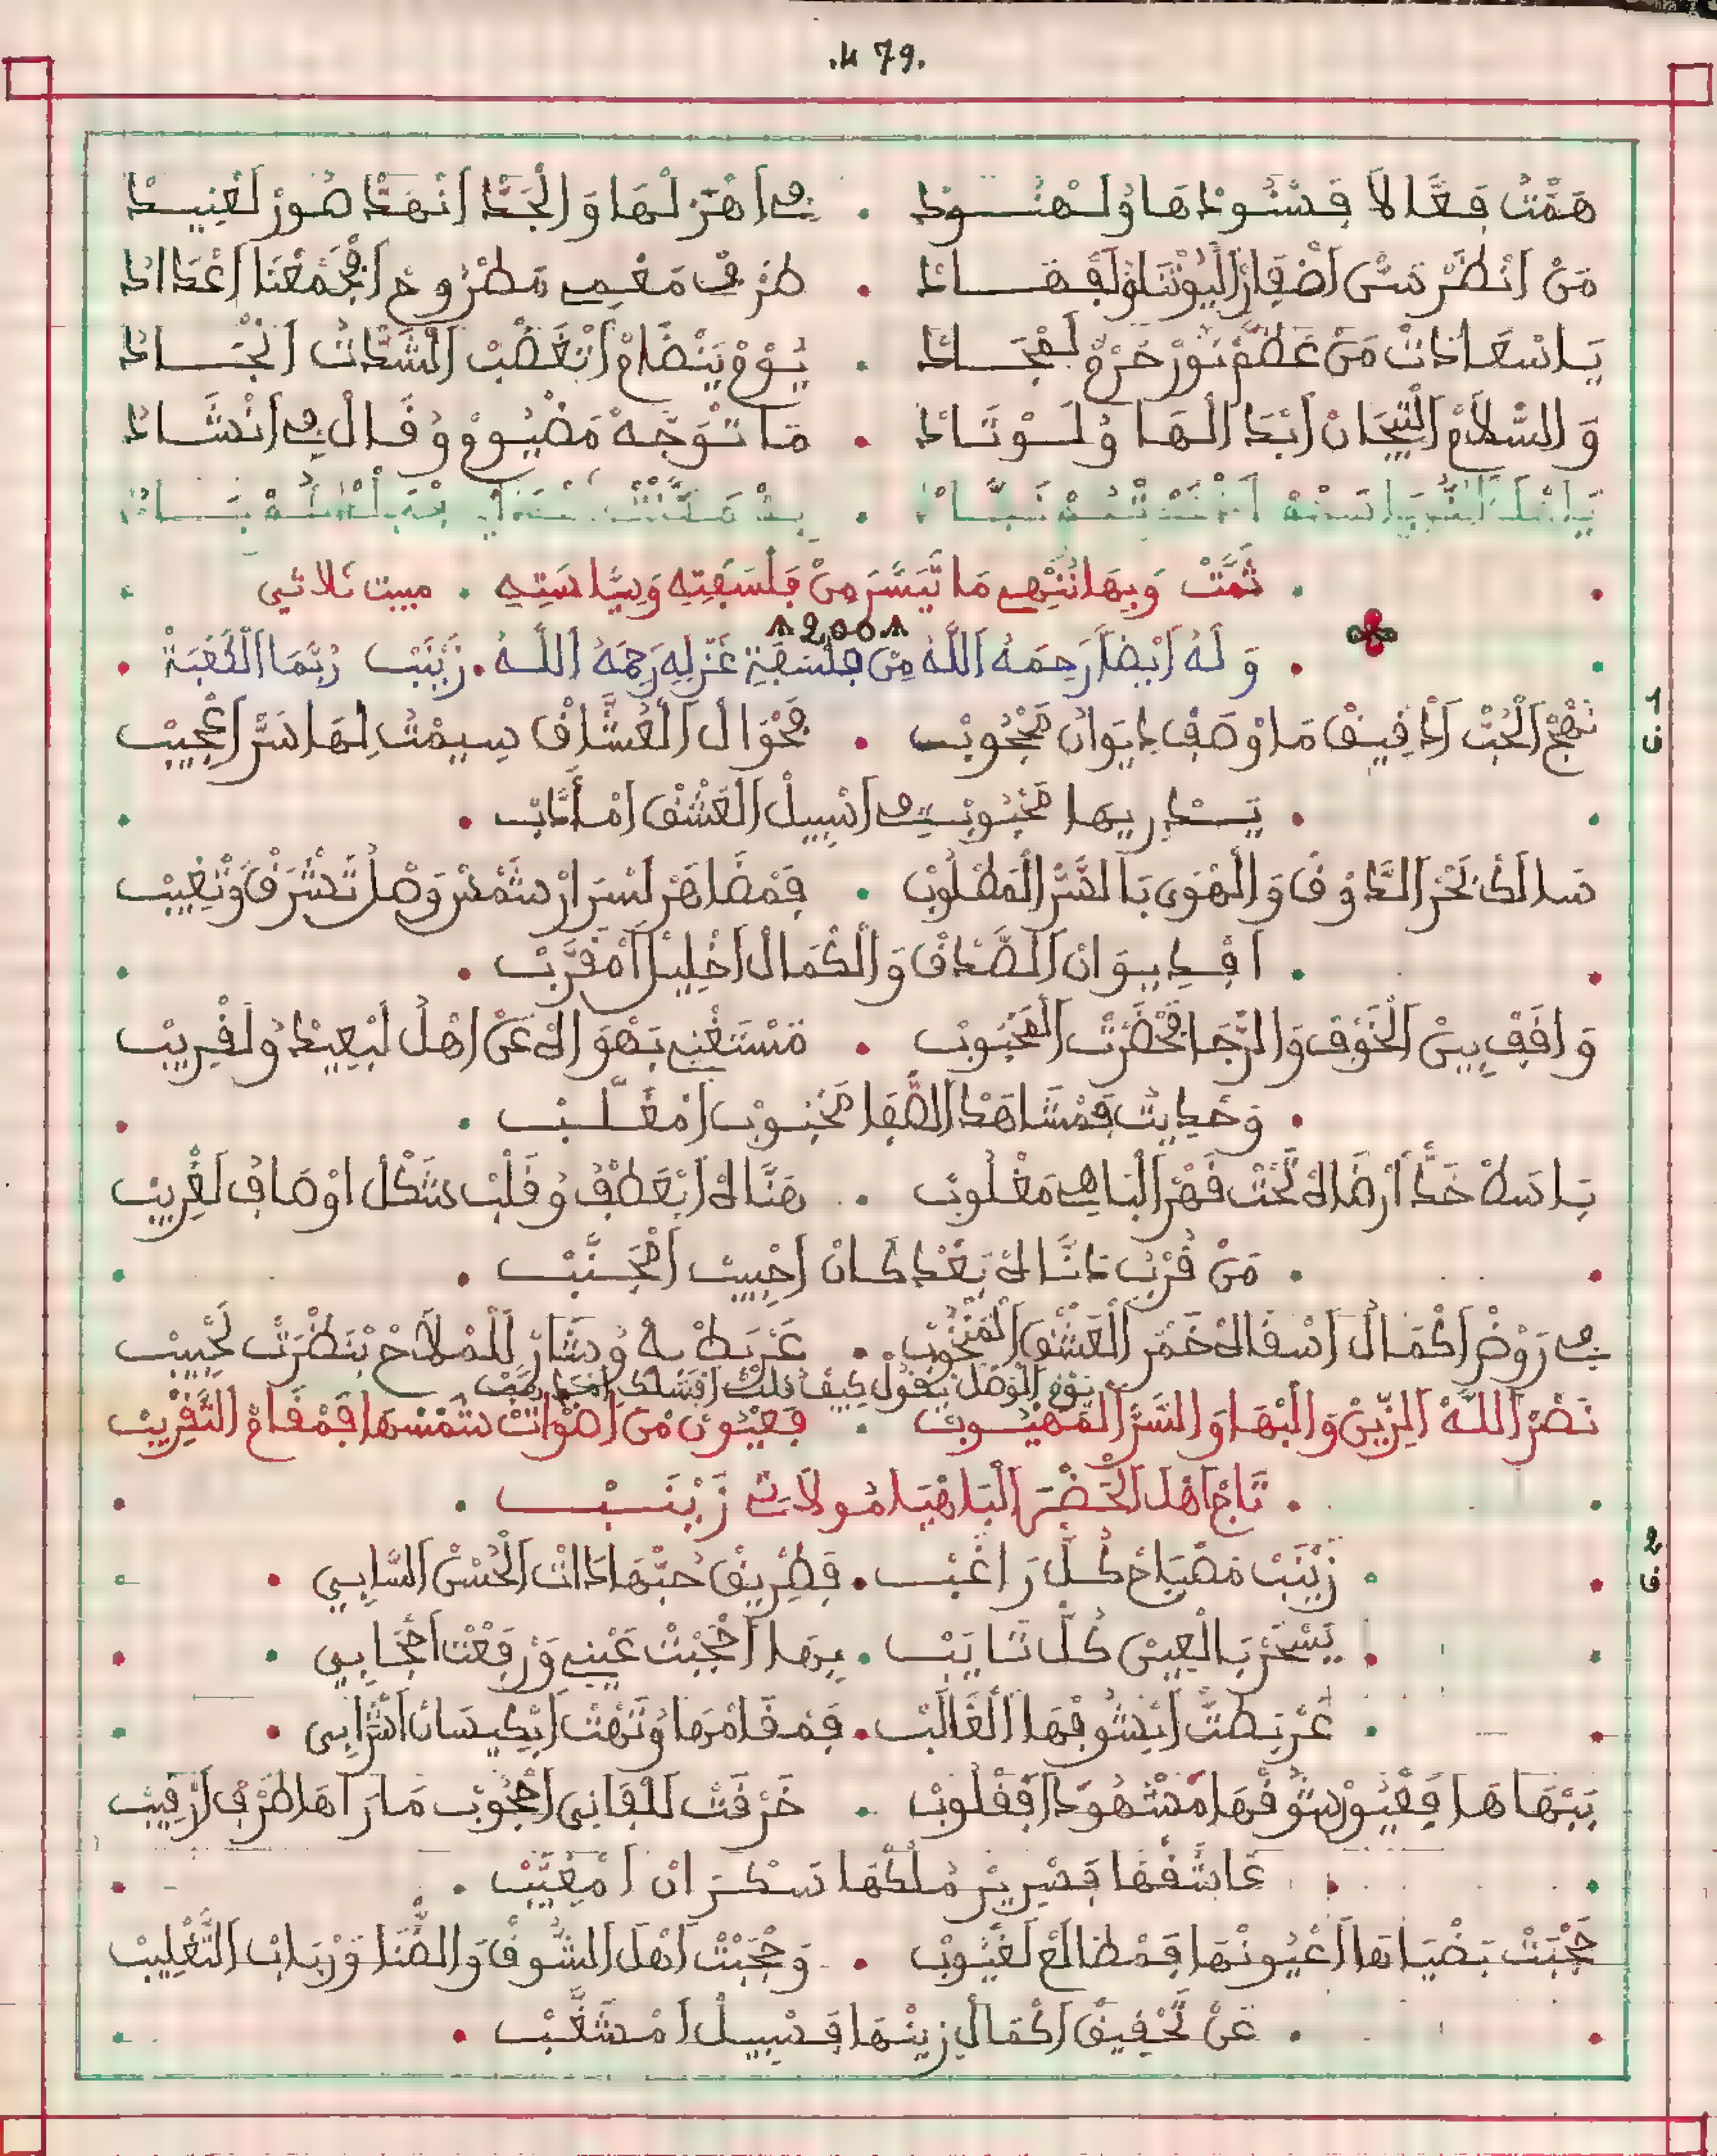 .479.
هَمّتْ فَعّالا فَسّودْها وُلَهْنُودْ . في اهْزلْها وَالْجَدّ انْهَدّا صُورْ لَغْنِيدْ
مَنْ انْطَرْ سَنّ اضْفارْ اليُوثْنا وُلَفْهادْ . طَرْفي مَعْمِي مَطْرُوح افْجَمْعْنا اعْدادْ
يَاسْعَادَاتْ مَنْ عَطّمْ نُورْ حَرْمْ لَمْجَادْ . يُومْ يَنْضَامْ اتْغَضْبْ الشَّدّاتْ انْجَادْ
وَالسّلامْ التّيجَانْ ابْدَا الْها وُلَوْتَادْ . مَا تْوَجّهْ مَضْيُومْ وُقَالْ في انْشَادْ
تَمَّتْ وَبِهَا انْتَهى مَا تَيَسَّرَ مِنْ فَلْسَفَتِهِ وَسِيَاسَتِهِ . مبيت ثلاثي
200
وَلَهُ أَيْضاً رَحِمَهُ اللَّهُ مِنْ فَلْسَفَةِ غَزَلِهِ رَحِمَهُ اللَّهُ . زَيْنَبْ رُبَّمَا الْكَعْبَةْ
ق 1
نَهْجْ الْحُبّ ادْقِيقْ مَا وْصَفْ دِيوَانْ مَحْجُوبْ . فَحْوَالْ الْعُشّاقْ سِيمْتْ لِهَا سَرّ اعْجِيبْ
يَدْرِيهَا مَحْبُوبْ في اسْبِيلْ الْعَشْقْ امْأَدّبْ
سَالَكْ بَحْر الدُّوقْ وَالْهْوَى بَالسَّرْ الْمَطْلُوبْ . فَمْضَاهَرْ لَسْرَارْ شَمْسْ وَصْلُ تَشْرَقْ وَتْغِيبْ
افْدِيوَانْ الصَّدْقْ وَالْكْمَالْ اخْلِيلْ امْقَرّبْ
وَاقَفْ بِينْ الْخَوْفْ وَالرّجَا فَحْضَرْتْ الْمَحْبُوبْ . مَسْتَغْنِي بَهْوَاهْ عَنْ اهْلُ لَبْعِيدْ وُلَقْرِيبْ
وَحْدِيثُ فَمْشَاهَدْ الصّفَا مَحْبُوبْ امْغَلّبْ
بَاسَطْ خَدّ ارْضَاهْ تَحْتْ قَهْرْ الْبَاهِي مَغْلُوبْ . هَنّاهْ ابْعَطْفُ وُقَلْبْ شَكْلْ اوْصَافُ لَغْرِيبْ
مَنْ قُرْبُ دَنّاهْ بَعْدْ كَانْ احْبِيبْ امْجَنّبْ
في رَوْضْ اكْمَالُ اسْقَاهْ خَمْرْ الْعَشْقْ الْمَنْخُوبْ . عَرْبَطْ بهْ وُشَارْ لَلْمْلاحْ بْنَظْرَتْ لَحْبِيبْ
يُومْ الْوْصَلْ يَقُولْ كِيفْ
نَصْرْ اللَّهْ الزّينْ وَالْبْهَا وَالسَّرْ الْمَهْيُوبْ . فَعْيُونْ مَنْ اضْوَاتْ شَمْسْهَا فَمْقَامْ التَّقْرِيبْ
تَاجْ اهْلْ الْحَضْرَ الْبَاهْيَا مُولاتِي زَيْنَبْ
ق 2
زَيْنَبْ مَصْبَاحْ كُلّ رَاغَبْ . فَطْرِيقْ حُبّهَا دَاتْ الْحُسْنْ السَّابِي
يَسْحَرْ بَالْعِينْ كُلّ تَايَبْ . بِهَا احْجَبْتْ عَيْنِي وَرْفَعْتْ احْجَابِي
عَرْبَطْتْ ابْشُوقْهَا الْغَالَبْ . فَمْقَامْهَا وُتَهْتْ ابْكِيسَانْ اشْرَابِي
بَبْهَاهَا فَعْيُونْ شُوقْهَا مَشْهُودْ افْقْلُوبْ . خَرْقَتْ لَلْفَانِي احْجُوبْ مَا رَاهَا طَرْفْ ارْقِيبْ
عَاشَقْهَا فَسْرِيرْ مُلْكْهَا سَكْرَانْ امْغَيّبْ
حَجْبَتْ بَضْيَاهَا اعْيُونْهَا فَمْطَالَعْ لَغْيُوبْ . وَحْجَبْتْ اهْلْ الشُّوقْ وَالضّنَا وَرْبَابْ التَّغْلِيبْ
عَنْ تَحْقِيقْ اكْمَالْ زِينْهَا فَسْبِيلْ امْشَغّبْ